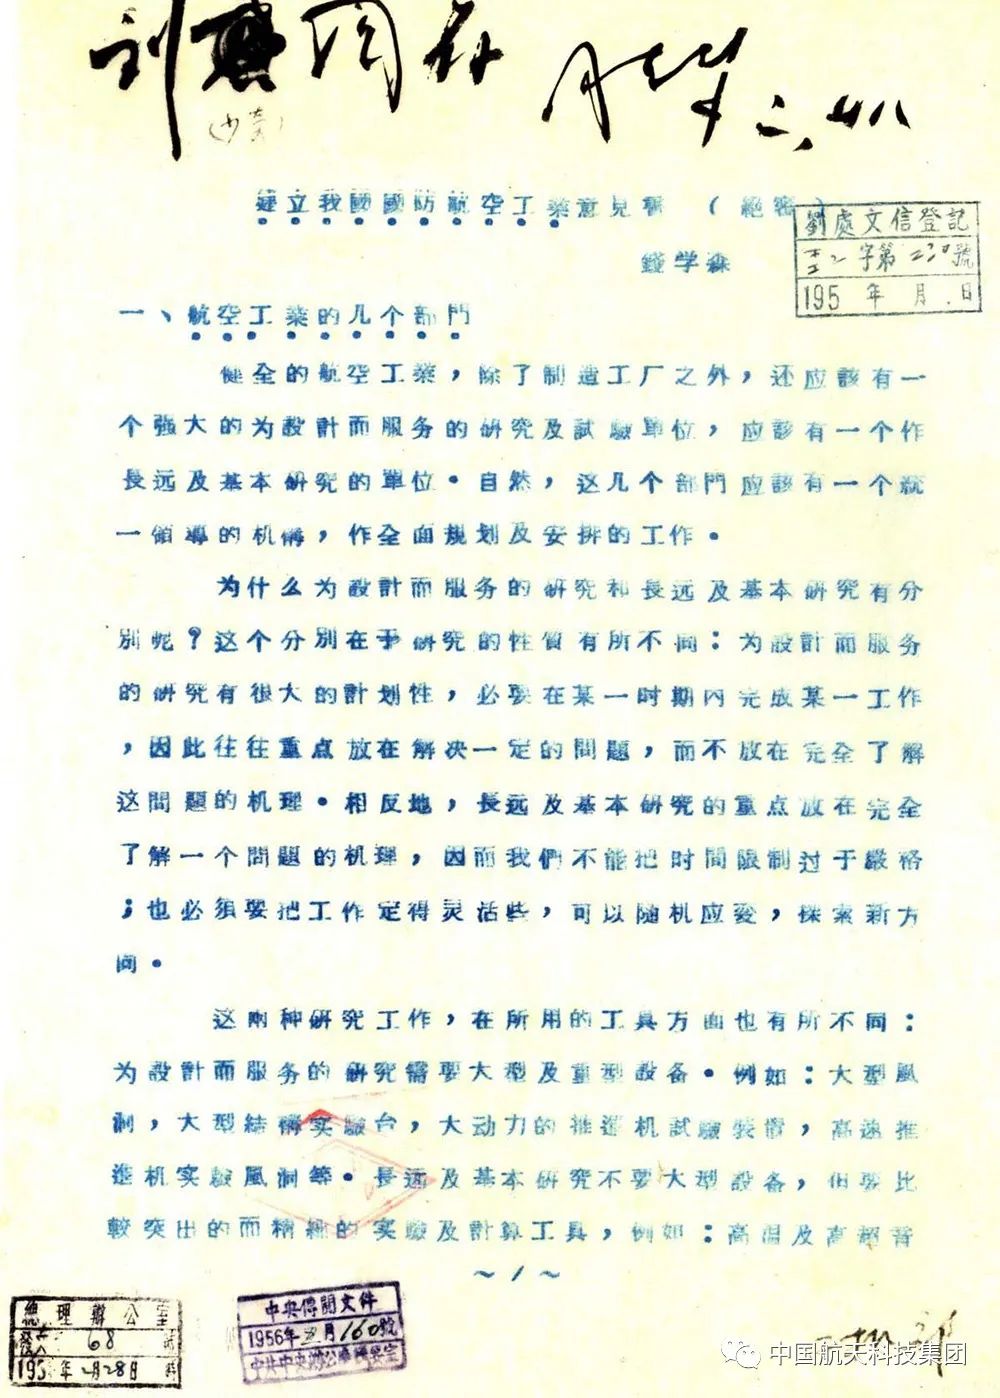 刘
同存
二、廿八
建立我國國防航空工業意見書 （絕密）
錢学森
劉處文信登記
字第230號
195 年 月 日
一、航空工業的几个部門
健全的航空工業，除了制造工厂之外，还应該有一
个强大的为設計而服务的研究及試驗單位，应該有一个作
長远及基本研究的單位。自然，这几个部門应該有一个統
一領導的机構，作全面規划及安排的工作。
为什么为設計而服务的研究和長远及基本研究有分
別呢？这个分別在于研究的性質有所不同：为設計而服务
的研究有很大的計划性，必要在某一时期內完成某一工作
，因此往往重点放在解决一定的問題，而不放在完全了解
这問題的机理。相反地，長远及基本研究的重点放在完全
了解一个問題的机理，因而我們不能把时間限制过于嚴格
；也必須要把工作定得灵活些，可以随机应变，探索新方
向。
这兩种研究工作，在所用的工具方面也有所不同：
为設計而服务的研究需要大型及重型設备。例如：大型風
洞，大型結構实驗台，大动力的推進机試驗裝置，高速推
進机实驗風洞等。長远及基本研究不要大型設备，但要比
較突出的而精細的实驗及計算工具，例如：高温及高超音
～1～
總理辦公室
68 號
195 年2月28日
中央傳閱文件
1956年2月160號
中共中央辦公廳秘書室
中国航天科技集团